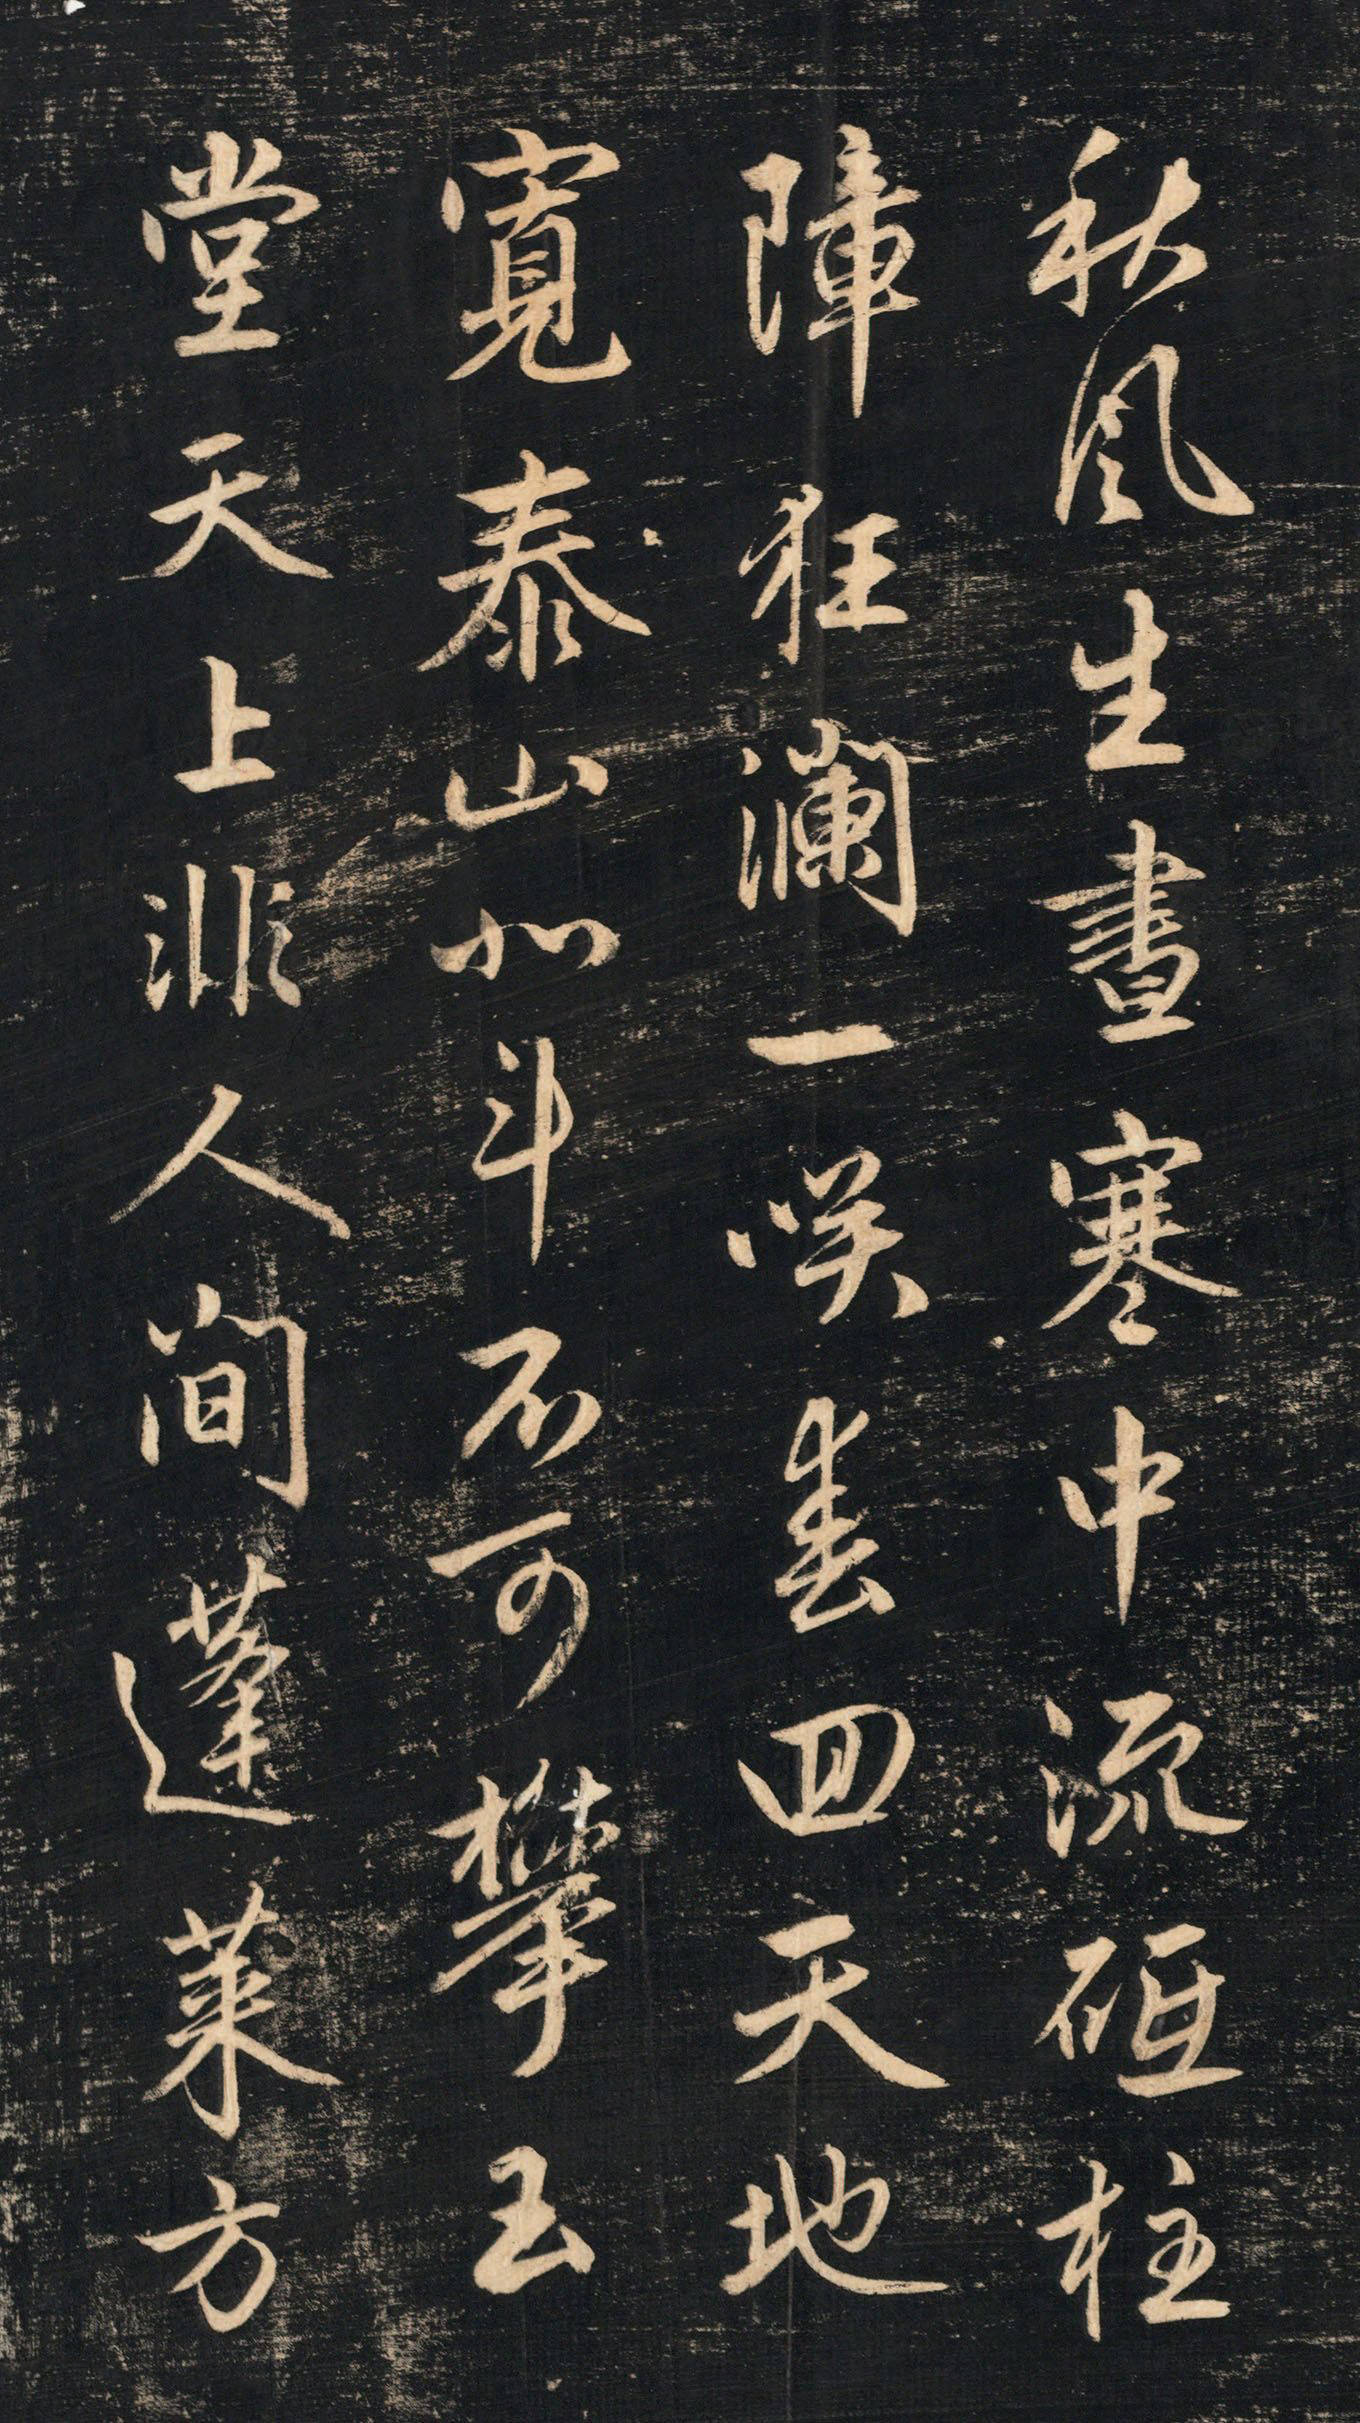 秋風生晝寒中流砥柱
障狂瀾一咲春回天地
寬泰山如斗不可攀玉
堂天上非人間蓬萊方